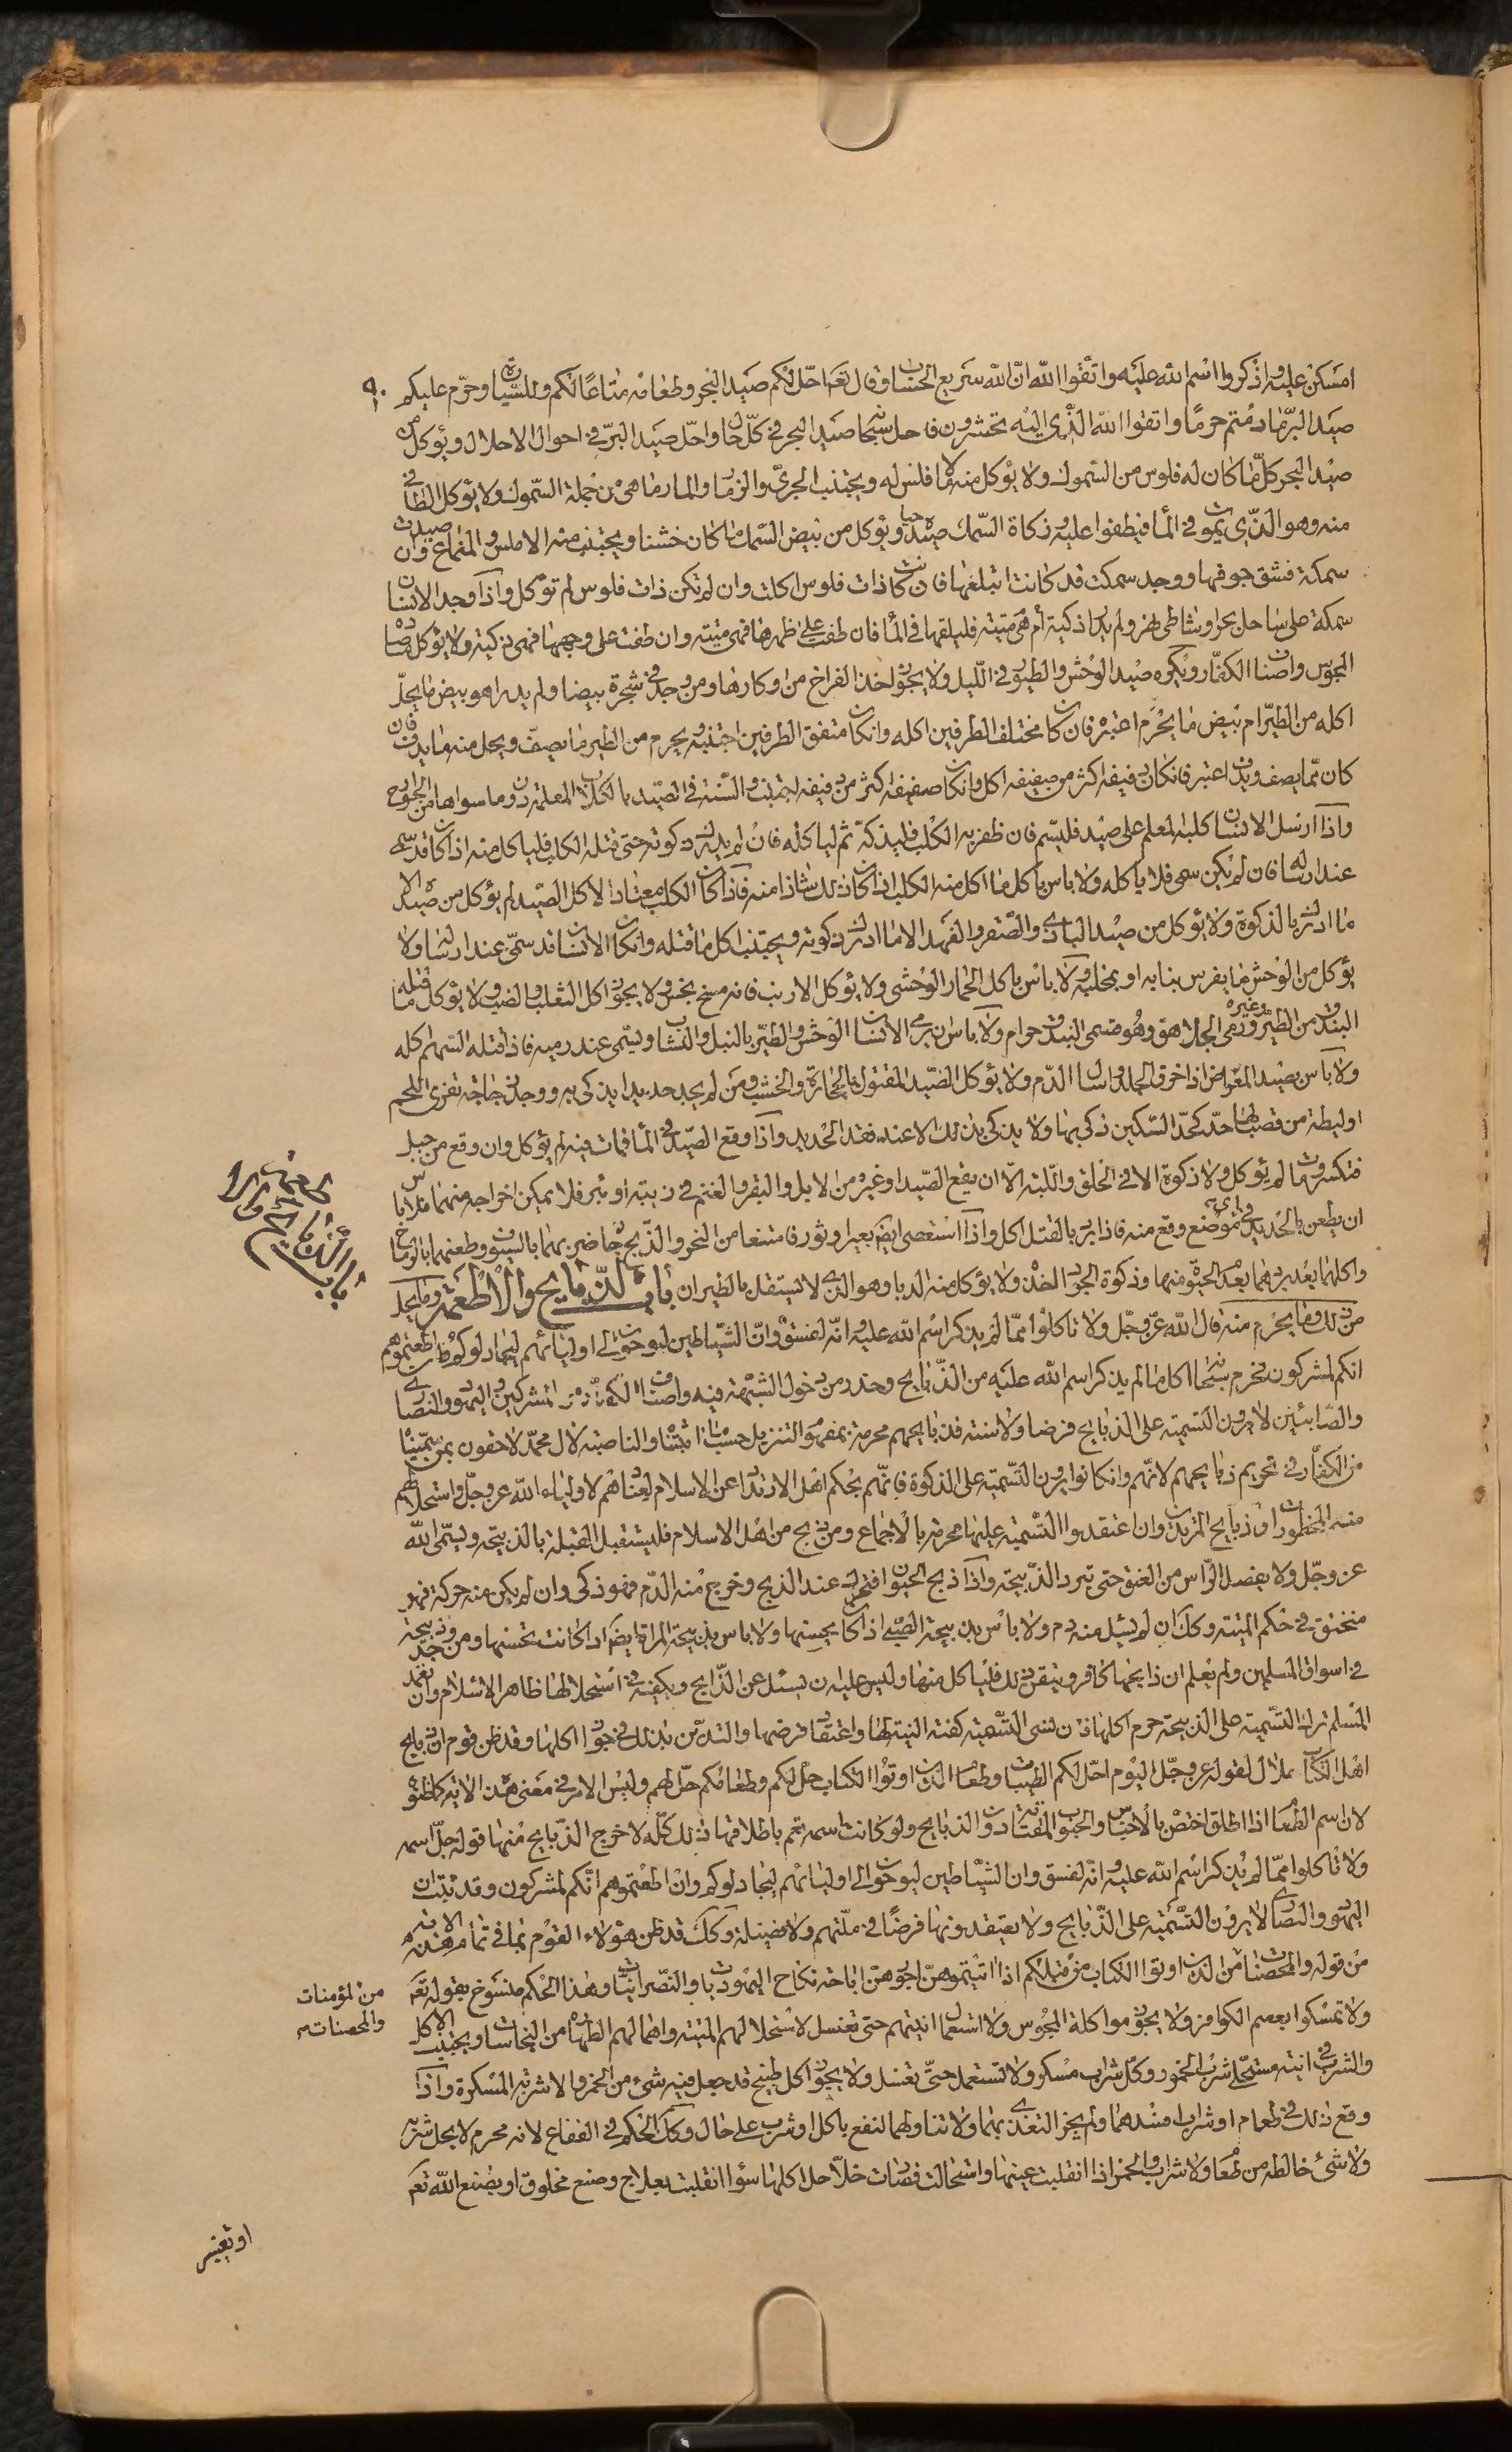 امسكن عليكم واذكروا اسم الله عليه واتقوا الله ان الله سريع الحساب وقال تعم احل لكم صيد البحر وطعامه متاعا لكم وللسيارة وحرم عليكم
٩٠
صيد البر ما دمتم حرما واتقوا الله الذي اليه تحشرون فاحل سبحانه صيد البحر في كل حال واحل صيد البر في احوال الاحلال ويؤكل من
صيد البحر كل ما كان له فلوس من السموك ولا يؤكل منه ما لا فلس له ويجتنب الجري والزمار والمارماهي من جملة السموك ولا يؤكل الطافي
منه وهو الذي يموت في الماء فيطفوا عليه وذكاة السمك صيده حيا ويؤكل من بيض السمك ما كان خشنا ويجتنب منه الاملس والمنماع وان صيدت
سمكة فشق جوفها ووجد سمكت قد كانت ابتلعتها فان كانت ذات فلوس اكلت وان لم تكن ذات فلوس لم تؤكل واذا وجد الانسان
سمكة على ساحل بحر او شاطئ نهر ولم يدر اذكية ام هي ميتة فليلقها في الماء فان طفت على ظهرها فهي ميتة وان طفت على وجهها فهي ذكية ولا يؤكل صيد
المجوس واصناف الكفار ويكره صيد الوحش والطيور في الليل ولا يجوز اخذ الفراخ من اوكارها ومن وجد في شجرة بيضا ولم يدر اهو بيض ما يحل
اكله من الطير ام بيض ما يحرم اعتبره فان كان مختلف الطرفين اكله وان كان متفق الطرفين اجتنبه ويحرم من الطير ما يصف ويحل منه ما يدف فان
كان مما يصف ويدف اعتبر فان كان دفيفه اكثر من صفيفه اكل وان كان صفيفه اكثر من دفيفه اجتنب والسنة في الصيد بالكلاب المعلمة دون ما سواها من الجوارح
واذا ارسل الانسان كلبه المعلم على صيد فليسم فان ظفر به الكلب فليذكه ثم لياكله فان لم يدرك ذكوته حتى قتله الكلب فلياكل منه اذا كان قد سمى
عند ارساله فان لم يكن سمى فلا ياكله ولا باس باكل ما اكل منه الكلب اذا كان ذلك شاذا منه فاذا كان الكلب معتادا لاكل الصيد لم يؤكل من صيده الا
ما ادرك بالذكوة ولا يؤكل من صيد البازي والصقر والفهد الا ما ادرك ذكوته ويجتنب اكل ما قتله وان كان الانسان قد سمى عند ارسالها ولا
يؤكل من الوحش ما يفرس بنابه او بمخلبه ولا باس باكل الحمار الوحشي ولا يؤكل الارنب فانه مسخ نجس ولا يجوز اكل الثعلب والضب ولا يؤكل ما قتله
البندق من الطير وغيره ورمى الجلاهق وهو قسى البندق حرام ولا باس ان يرمى الانسان الوحش والطير بالنبل والنشاب ويسمى عند رميه فاذا قتله السهم اكله
ولا باس بصيد المعراض اذا خرق الجلد واسال الدم ولا يؤكل الصيد المقتول بالحجارة والخشب ومن لم يجد حديدا يذكى به ووجد زجاجة تفرى اللحم
او ليطة من قصب لها حد كحد السكين ذكى بها ولا يذكى بذلك الا عند فقد الحديد واذا وقع الصيد في الماء فمات فيه لم يؤكل وان وقع من جبل
فتكسر ومات لم يؤكل ولا ذكوة الا في الحلق واللبة الا ان يقع الصيد او غيره من الابل والبقر والغنم في زبية او بئر فلا يمكن اخراجه منها فلا باس
ان يطعن بالحديد في اي موضع وقع منه فاذا برد بالقتل اكل واذا استعصى ايضا بعير او ثور فامتنعا من النحر والذبح جاز ضربهما بالسيوف وطعنهما بالرماح
باب الذبائح والاطعمة وما
واكلهما بعد بردهما بعد الحيوة منها وذكوة الجراد اخذه ولا يؤكل منه الدبا وهو الذي لا يستقل بالطيران باب الذبايح والاطعمة وما يحل
من ذلك وما يحرم منه قال الله عز وجل ولا تاكلوا مما لم يذكر اسم الله عليه وانه لفسق وان الشياطين ليوحون الى اوليائهم ليجادلوكم وان اطعتموهم
انكم لمشركون فحرم سبحانه اكل ما لم يذكر اسم الله عليه من الذبايح وحذر من دخول الشبهة فيه واصناف الكفار من المشركين واليهود والنصارى
والصابئين لا يرون التسمية على الذبايح فرضا ولا سنة فذبايحهم محرمة بمفهوم التنزيل حسب ما اثبتناه والناصبة لال محمد لاحقون بمن سميناه
من الكفار في تحريم ذبايحهم لانهم وان كانوا يرون التسمية على الذكوة فانهم بحكم اهل الارتداد عن الاسلام لعنادهم لاولياء الله عز وجل واستحلالهم
منه المحظورات وذبايح المرتدين وان اعتقدوا التسمية عليها محرمة بالاجماع ومن ذبح من اهل الاسلام فليستقبل القبلة بالذبيحة ويسمى الله
عز وجل ولا يفصل الراس من العنق حتى تبرد الذبيحة واذا ذبح الحيوان فتحرك عند الذبح وخرج منه الدم فهو ذكى وان لم يكن منه حركة فهو
منخنق في حكم الميتة وكك ان لم يسل منه دم ولا باس بذبيحة الصبي اذا كان يحسنها ولا باس بذبيحة المراة ايضا اذا كانت تحسنها ومن وجد ذبيحة
في اسواق المسلمين ولم يعلم ان ذابحها كافر وتيقن ذلك فلياكل منها وليس عليه ان يسئل عن الذابح ويكفيه في استحلالها ظاهر الاسلام وان تعمد
المسلم ترك التسمية على الذبيحة حرم اكلها فان نسى التسمية كفته النية لها واعتقاد فرضها والتدين بذلك في جواز اكلها وقد ظن قوم ان ذبايح
اهل الكتاب حلال لقوله عز وجل اليوم احل لكم الطيبات وطعام الذين اوتوا الكتاب حل لكم وطعامكم حل لهم وليس الامر في معنى هذه الاية كما ظنوه
لان اسم الطعام اذا اطلق اختص بالاخباز والحبوب المقتاتة دون الذبايح ولو كانت اسمه تعم باطلاقها ذلك كله لاخرج الذبايح منها قوله جل اسمه
ولا تاكلوا مما لم يذكر اسم الله عليه وانه لفسق وان الشياطين ليوحون الى اوليائهم ليجادلوكم وان اطعتموهم انكم لمشركون وقد ثبت ان
اليهود والنصارى لا يرون التسمية على الذبايح ولا يعتقدونها فرضا في ملتهم ولا فضيلة وكك قد ظن هؤلاء القوم بما في تمام هذه الاية
من قوله والمحصنات من الذين اوتوا الكتاب من قبلكم اذا اتيتموهن اجورهن اباحة نكاح اليهوديات والنصرانيات وهذا الحكم منسوخ بقوله تعم
من المؤمنات
والمحصنات
ولا تمسكوا بعصم الكوافر ولا يجوز مواكلة المجوس ولا استعمال انيتهم حتى تغسل لاستحلالهم الميتة واهمالهم الطهارة من النجاسات ويجتنب الاكل
والشرب في انية مستحلي شرب الخمور وكل شراب مسكر ولا تستعمل حتى تغسل ولا يجوز اكل طبيخ قد جعل فيه شيء من الخمر والاشربة المسكرة واذا
وقع ذلك في طعام او شراب افسدهما ولم يجز التغذي بهما ولا تناولهما لنفع باكل او شرب على حال وكك الحكم في الفقاع لانه محرم لا يحل شربه
ولا شئ خالطه من طعام ولا شراب والخمر اذا انقلبت عينها واستحالت فصارت خلا حل اكلها سواء انقلبت بعلاج وصنع مخلوق او بصنع الله تعم
او تغيير